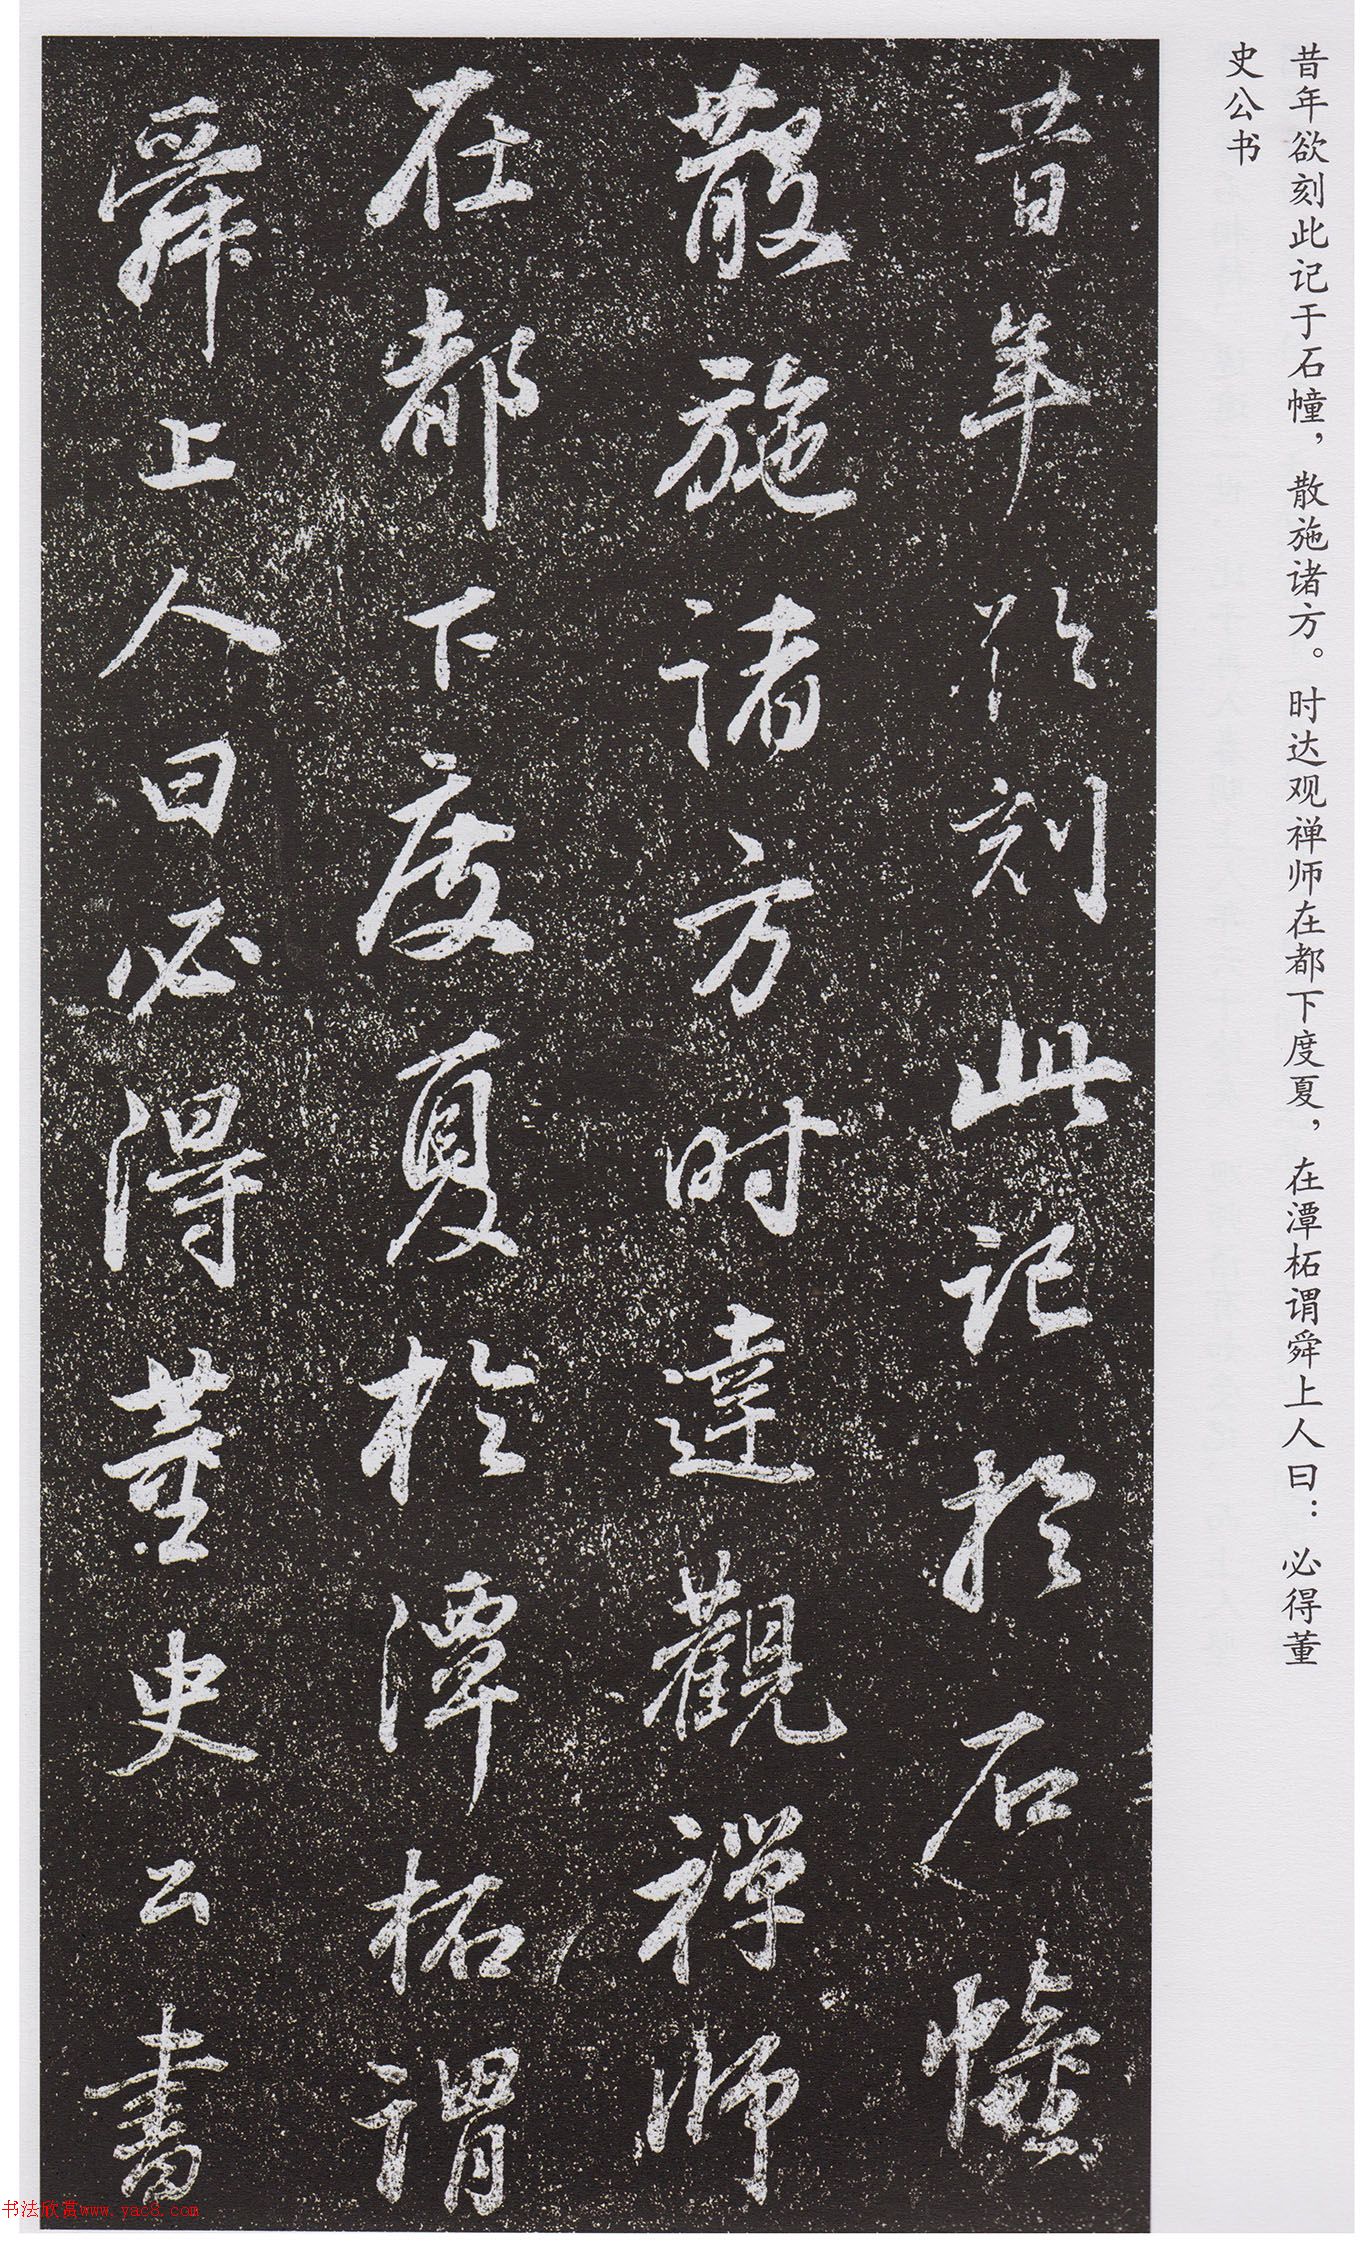 昔年欲刻此记于石幢，散施诸方。时达观禅师在都下度夏，在潭柘谓舜上人曰：必得董
史公书
昔年欲刻此記於石幢
散施諸方时達觀禪师
在都下度夏於潭柘謂
舜上人曰必得董史公書
书法欣赏www.yac8.com